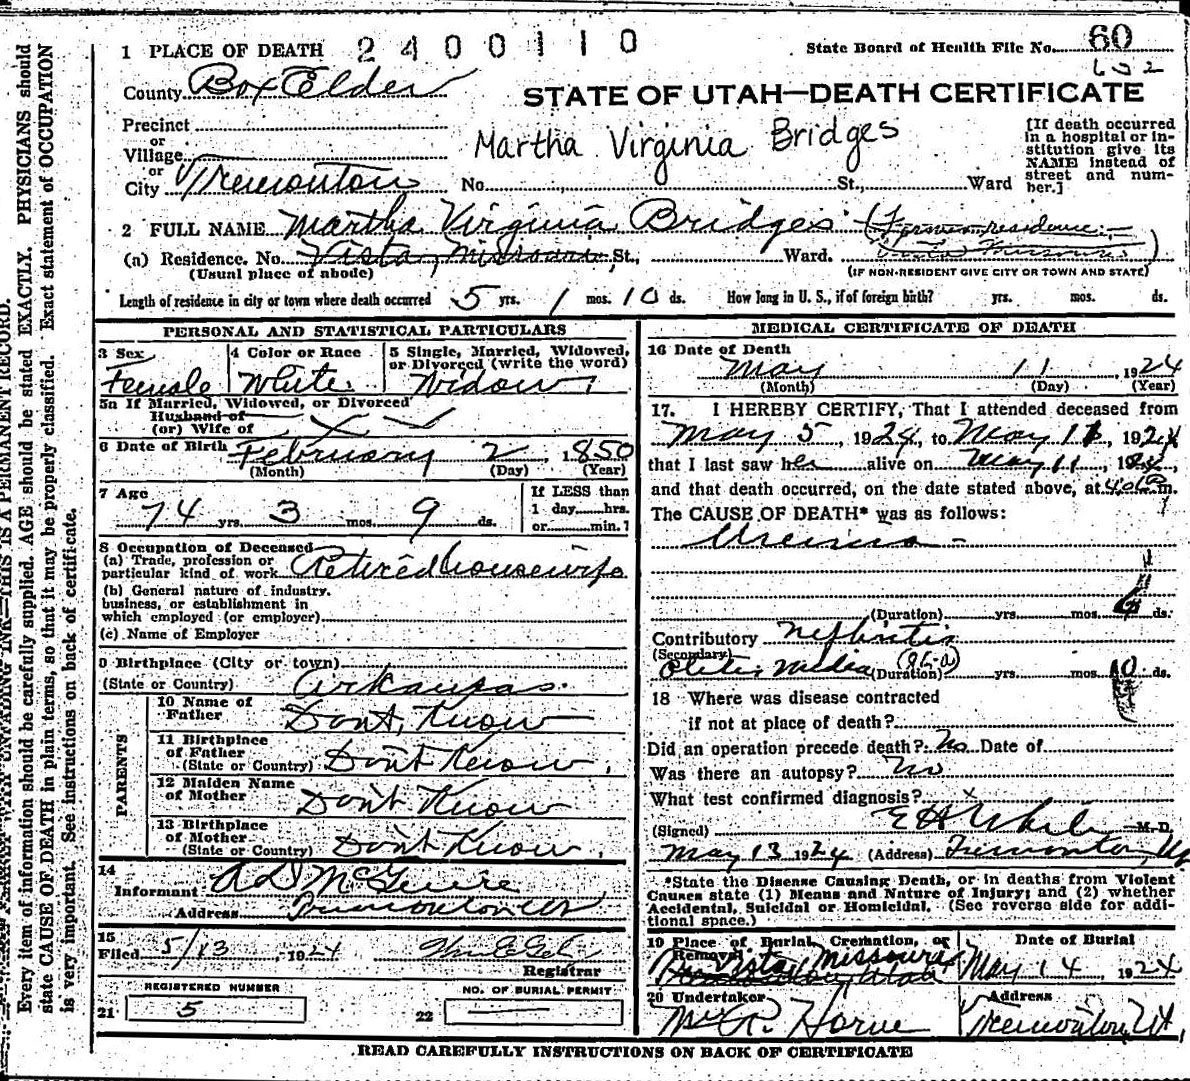 1 PLACE OF DEATH 2400110
State Board of Health File No. 60
652
County Box Elder
STATE OF UTAH—DEATH CERTIFICATE
Precinct
or
Village
or
City Tremonton No. St., Ward
Martha Virginia Bridges
[If death occurred
in a hospital or in-
stitution give its
NAME instead of
street and num-
ber.]
2 FULL NAME Martha Virginia Bridges (Former residence:—
(a) Residence. No. Vista, Missouri, St., Ward. Vista Missouri)
(Usual place of abode) (IF NON-RESIDENT GIVE CITY OR TOWN AND STATE)
Length of residence in city or town where death occurred 5 yrs. 1 mos. 10 ds. How long in U. S., if of foreign birth? yrs. mos. ds.
PERSONAL AND STATISTICAL PARTICULARS
3 Sex
Female
4 Color or Race
White
5 Single, Married, Widowed,
or Divorced (write the word)
Widow
5a If Married, Widowed, or Divorced
Husband of
(or) Wife of
6 Date of Birth February 2, 1850
(Month) (Day) (Year)
7 Age
74 yrs. 3 mos. 9 ds.
If LESS than
1 day hrs.
or min.?
8 Occupation of Deceased
(a) Trade, profession or
particular kind of work Retired housewife
(b) General nature of industry,
business, or establishment in
which employed (or employer)
(c) Name of Employer
9 Birthplace (City or town)
(State or Country) Arkansas.
PARENTS
10 Name of
Father Don't Know
11 Birthplace
of Father
(State or Country) Don't Know.
12 Maiden Name
of Mother Don't Know
13 Birthplace
of Mother
(State or Country) Don't Know.
14
Informant A D McGuire
Address Tremonton Ut
15
Filed 5/13, 1924
Registrar
REGISTERED NUMBER
21 5
NO. OF BURIAL PERMIT
22
MEDICAL CERTIFICATE OF DEATH
16 Date of Death
May 11, 1924
(Month) (Day) (Year)
17. I HEREBY CERTIFY, That I attended deceased from
May 5, 1924, to May 11, 1924
that I last saw her alive on May 11, 1924,
and that death occurred, on the date stated above, at m.
The CAUSE OF DEATH* was as follows:
Uremia —
(Duration) yrs. mos. 6 ds.
Contributory Nephritis
(Secondary)
Otitis Media (Duration) yrs. mos. 10 ds.
18 Where was disease contracted
if not at place of death?
Did an operation precede death? No Date of
Was there an autopsy? No
What test confirmed diagnosis? x
(Signed) E H White M. D.
May 13 1924 (Address) Tremonton, Ut
*State the Disease Causing Death, or in deaths from Violent
Causes state (1) Means and Nature of Injury; and (2) whether
Accidental, Suicidal or Homicidal. (See reverse side for addi-
tional space.)
19 Place of Burial, Cremation, or
Removal
Vista, Missouri
Tremonton, Utah
Date of Burial
May 14 1924
20 Undertaker
Horne
Address
Tremonton, Ut,
READ CAREFULLY INSTRUCTIONS ON BACK OF CERTIFICATE
Every item of information should be carefully supplied. AGE should be stated EXACTLY. PHYSICIANS should
state CAUSE OF DEATH in plain terms, so that it may be properly classified. Exact statement of OCCUPATION
is very important. See instructions on back of certificate.
UNFADING INK—THIS IS A PERMANENT RECORD.